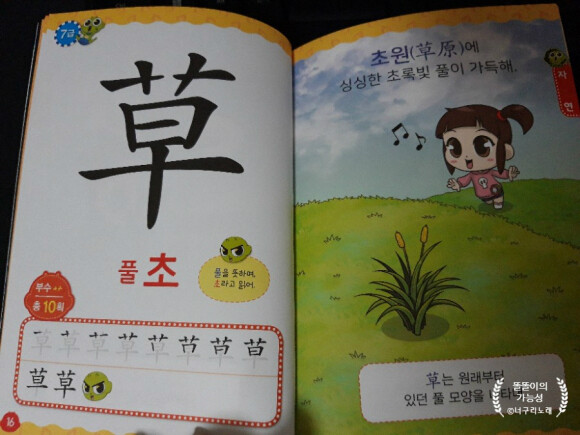 7급
草
풀 초
풀을 뜻하며,
초라고 읽어.
부수 艹
총 10획
草 草 草 草 草 草 草 草
草 草
16
초원(草原)에
싱싱한 초록빛 풀이 가득해.
자연
草는 원래부터
있던 풀 모양을
똘똘이의
가능성
©너구리노래